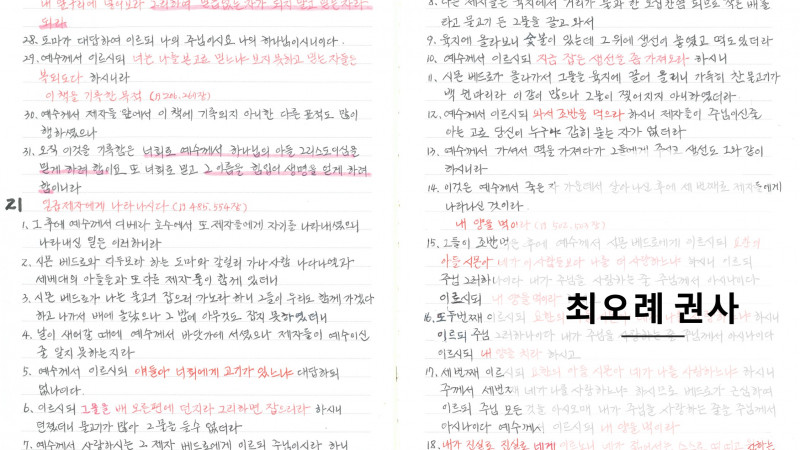 내 옆구리에 넣어보라 그리하여 믿음없는자가 되지 말고 믿는자가
되라
28. 도마가 대답하여 이르되 나의 주님이시요 나의 하나님이시니이다.
29. 예수께서 이르시되 너는 나를 본고로 믿느냐 보지 못하고 믿는 자들은
복되도다 하시니라
이 책을 기록한 목적
30. 예수께서 제자들 앞에서 이 책에 기록되지 아니한 다른 표적도 많이
행하셨으나
31. 오직 이것을 기록함은 너희로 예수께서 하나님의 아들 그리스도이심을
믿게 하려 함이요 또 너희로 믿고 그 이름을 힘입어 생명을 얻게 하려
함이니라
21 일곱제자에게 나타나시다
1. 그 후에 예수께서 디베랴 호수에서 또 제자들에게 자기를 나타내셨으니
나타내신 일은 이러하니라
2. 시몬 베드로와 디두모라 하는 도마와 갈릴리 가나사람 나다나엘과
세베대의 아들들과 또 다른 제자 둘이 함께 있더니
3. 시몬 베드로가 나는 물고기 잡으러 가노라 하니 그들이 우리도 함께 가겠다
하고 나가서 배에 올랐으나 그 밤에 아무것도 잡지 못하였더니
4. 날이 새어갈 때에 예수께서 바닷가에 서셨으나 제자들이 예수이신
줄 알지 못하는지라
5. 예수께서 이르시되 얘들아 너희에게 고기가 있느냐 대답하되
없나이다.
6. 이르시되 그물을 배 오른편에 던지라 그리하면 잡으리라 하시니
던졌더니 물고기가 많아 그물을 들 수 없더라
7. 예수께서 사랑하시는 그 제자 베드로에게 이르되 주님이시라 하니
8. 다른 제자들은 육지에서 거리가 불과 한 오십칸쯤 되므로 작은 배를
타고 물고기 든 그물을 끌고 와서
9. 육지에 올라보니 숯불이 있는데 그 위에 생선이 놓였고 떡도 있더라
10. 예수께서 이르시되 지금 잡은 생선을 좀 가져오라 하시니
11. 시몬 베드로가 올라가서 그물을 육지에 끌어 올리니 가득히 찬 물고기가
백 쉰 다섯 마리라 이같이 많으나 그물이 찢어지지 아니하였더라
12. 예수께서 이르시되 와서 조반을 먹으라 하시니 제자들이 주님이신줄
아는 고로 당신이 누구냐 감히 묻는 자가 없더라
13. 예수께서 가셔서 떡을 가져다가 그들에게 주시고 생선도 그와 같이
하시니라
14. 이것은 예수께서 죽은 자 가운데서 살아나신 후에 세 번째로 제자들에게
나타나신 것이라
내 양을 먹이라
15. 그들이 조반먹은 후에 예수께서 시몬 베드로에게 이르시되 요한의
아들 시몬아 네가 이 사람들보다 나를 더 사랑하느냐 하시니 이르되
주님 그러하나이다 내가 주님을 사랑하는 줄 주님께서 아시나이다
이르시되 내 양을 먹이라
최오례 권사
16. 또 두번째 이르시되 요한의
이르되 주님 그러하나이다 내가 주님을 사랑하는 줄 주님께서 아시나이다
이르시되 내 양을 치라 하시고
17. 세번째 이르시되 요한의 아들 시몬아 네가 나를 사랑하느냐 하시니
주께서 세번째 네가 나를 사랑하느냐 하시므로 베드로가 근심하여
이르되 주님 모든 것을 아시오매 내가 주님을 사랑하는 줄을 주님께서
아시나이다 예수께서 이르시되 내 양을 먹이라
18. 내가 진실로 진실로 네게 이르노니